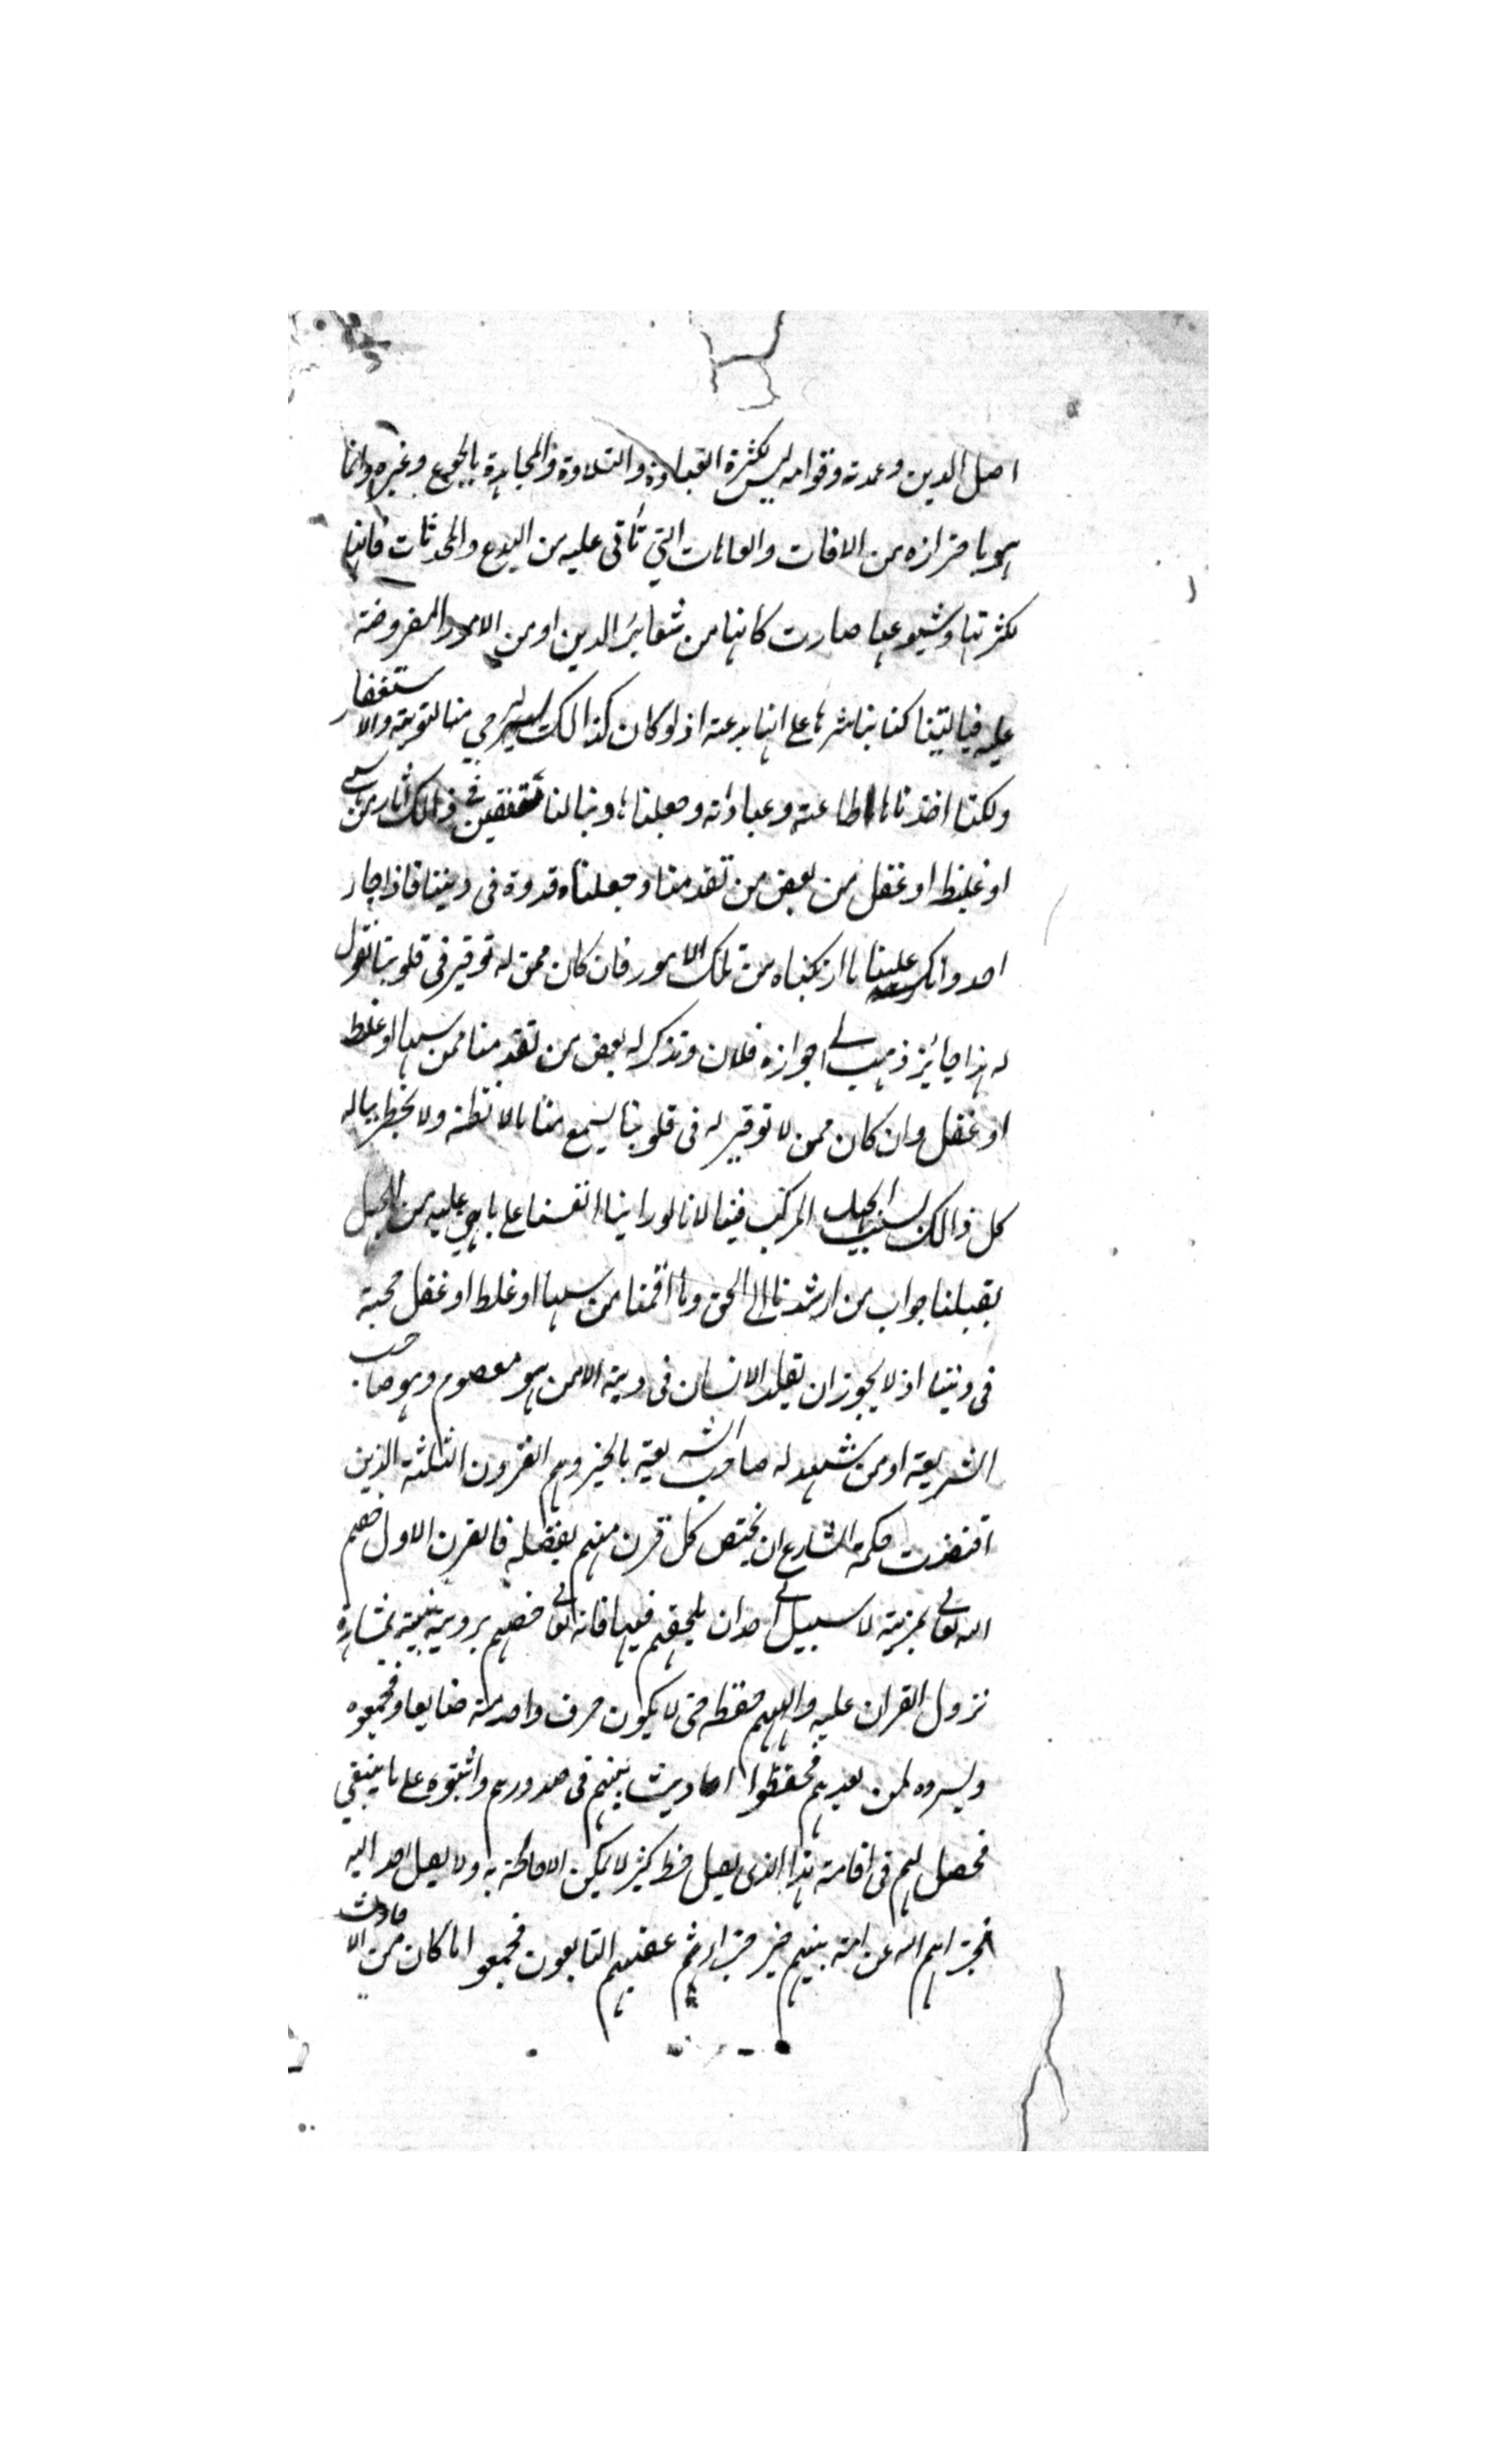 اصل الدين وعمدته وقوامه ليس بكثرة العبادة والتلاوة والمجاهدة بالجوع وغيره وانما
هو باحترازه من الافات والعاهات التي تأتى عليه من البدع والمحدثات فانها
بكثرتها وشيوعها صارت كانها من شعائر الدين او من الامور المفروضة
عليه فياليتنا كنا نباشرها على انها بدعة اذ لو كان كذالك يرجي منا التوبة والاستغفار
ولكنا اخذناها طاعته وعباداته وجعلناها دينا لنا متقفين في ذالك اثار من سهى
او غلط او غفل من بعض من تقدمنا وجعلناه قدوة في ديننا فاذا جاء
احد وانكر علينا ما ارتكبناه من تلك الامور فان كان ممن له توقير في قلوبنا نقول
له هذا جائز ذهب الى جوازه فلان وتذكر له بعض من تقدمنا ممن سها او غلط
او غفل وان كان ممن لا توقير له في قلوبنا يسمع منا مالا نظنه ولا يخطر بباله
كل ذالك بسبب الجهل المركب فينا لانا لو راينا انفسنا على ما هي عليه من الجهل
بقبلنا جواب من ارشدنا الى الحق وما اقمنا من سها او غلط او غفل حجة
في ديننا اذ لا يجوز ان يقلد الانسان في دينه الا من هو معصوم وهو صاحب
الشريعة او من شهد له صاحب الشريعة بالخير وهم القرون الثلثة الذين
اقتضت حكمة الشارع ان يختص كل قرن منهم بفضله فالقرن الاول خصهم
الله تعالى بمزية لا سبيل لي احد ان يلحقهم فيها فانه تعالى خصهم برويه نبيه بمشاهدة
نزول القران عليه والهمهم حفظه حتى لا يكون حرف واحد منه ضايعا فجمعوه
ويسروه لمن بعدهم فحفظوا احاديث نبيهم في صدورهم واثبتوه على ما ينبغي
فحصل لهم في اقامة هذا الذي يعمل حظ كثير لا يمكن الاحاطة به ولا يصل احد اليه
فجزاهم الله عن امة نبيهم خير جزاء ثم عقبهم التابعون فجمعوا ما كان من الاحاديث